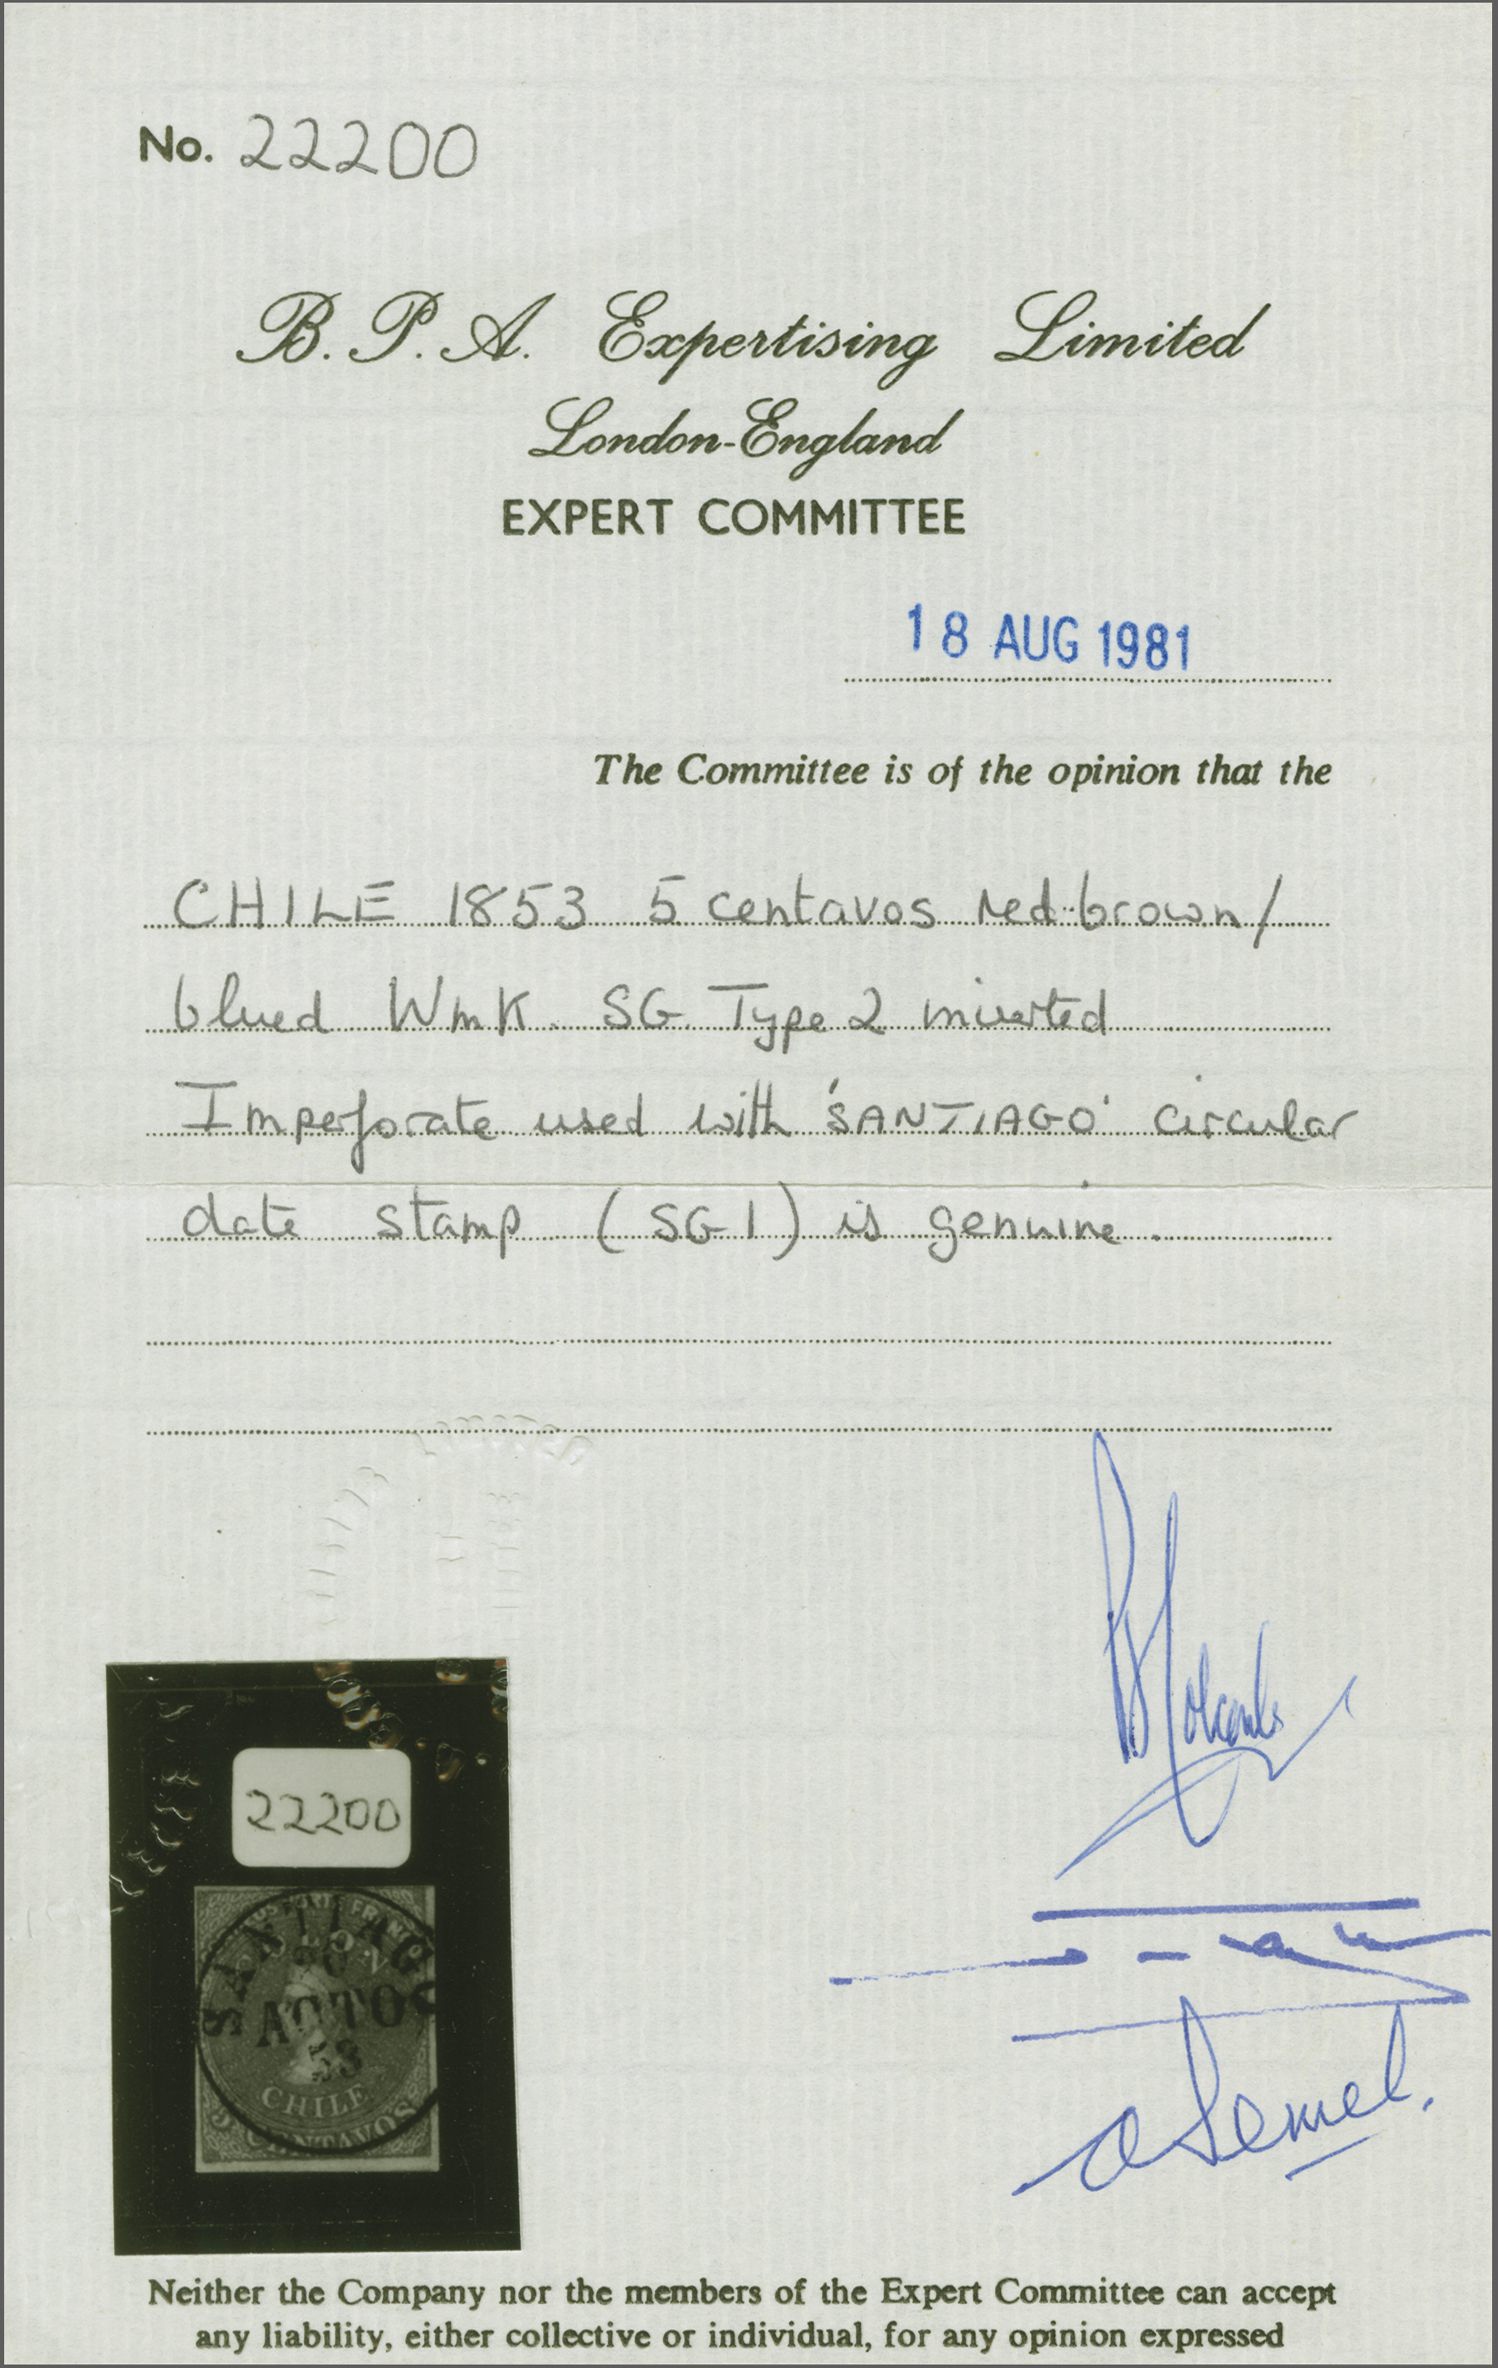 No. 22200
B. P. A. Expertising Limited
London-England
EXPERT COMMITTEE
18 AUG 1981
The Committee is of the opinion that the
CHILE 1853 5 centavos red-brown/
blued Wmk. SG Type 2 inverted
Imperforate used with 'SANTIAGO' circular
date stamp (SG 1) is genuine.
22200
SANTIAGO
AGTO
53
CHILE
CENTAVOS
Neither the Company nor the members of the Expert Committee can accept
any liability, either collective or individual, for any opinion expressed